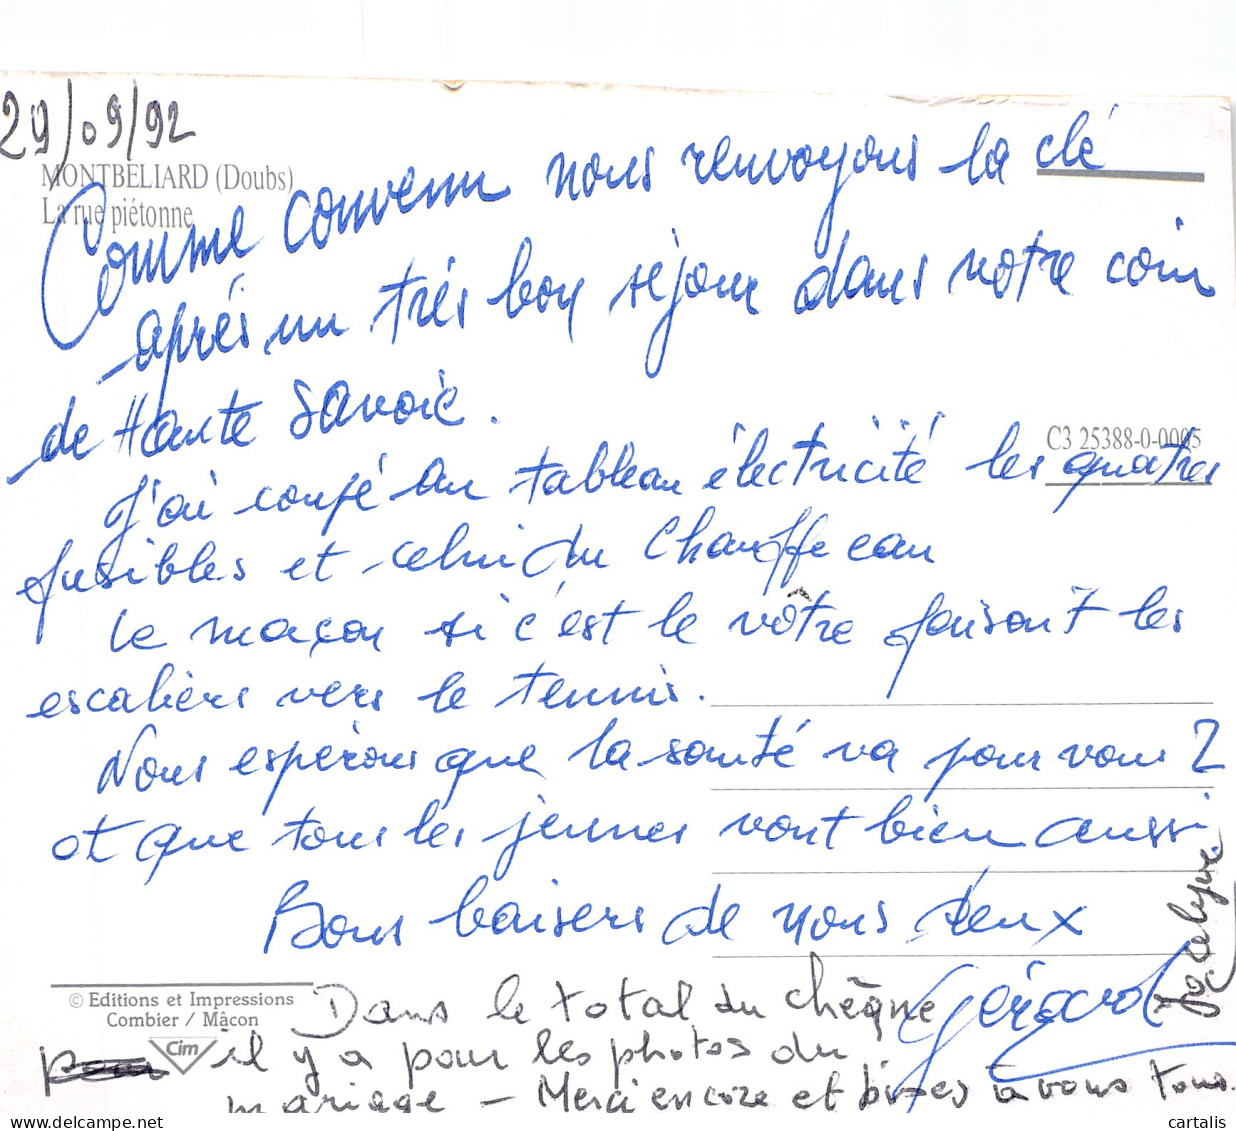 29/09/92
MONTBELIARD (Doubs)
La rue piétonne
Comme convenu nous renvoyons la clé
après un très bon séjour dans notre coin
de Haute Savoie.
C3 25388-0-0005
J'ai coupé au tableau électricité les quatres
fusibles et celui du chauffe eau
Le maçon si c'est le vôtre faisait les
escaliers vers le tennis.
Nous espérons que la santé va pour vous 2
et que tous les jeunes vont bien aussi
Bons baisers de nous deux
Gérard Jocelyne
© Editions et Impressions
Combier / Mâcon
Cim
Dans le total du chèque
il y a pour les photos du
mariage - Merci encore et bises à vous tous.
cartalis
delcampe.net